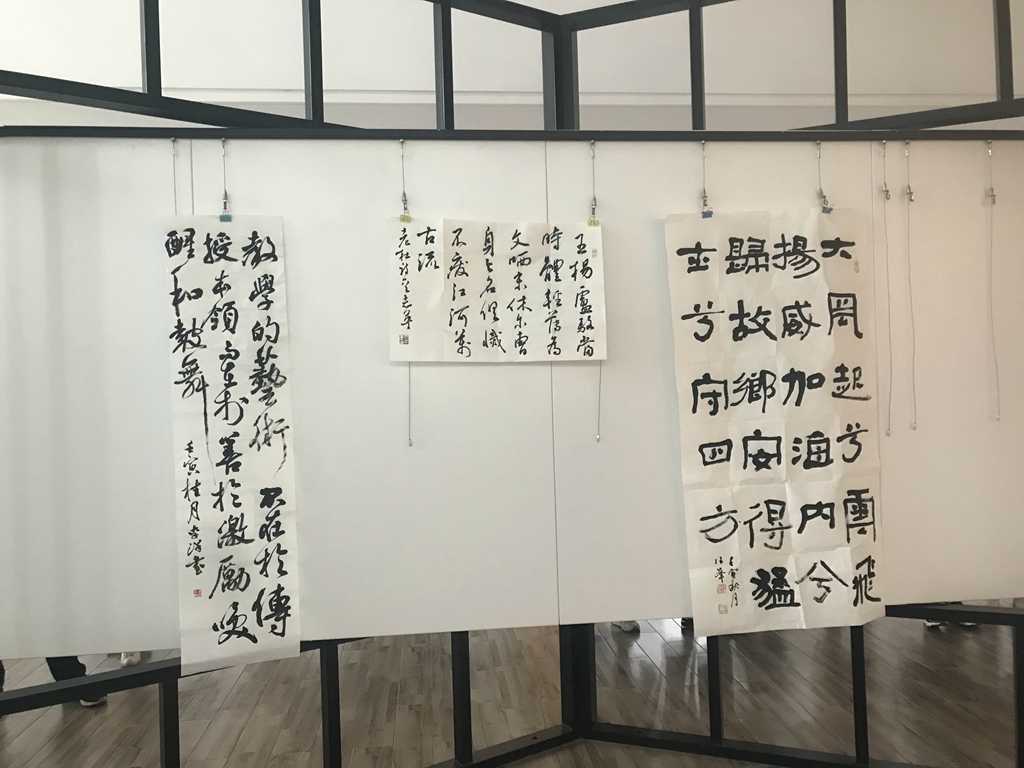 教學的藝術不在於傳
授本領而在於善於激勵喚
醒和鼓舞
壬寅桂月
王楊盧駱當
時體輕薄為
文哂未休爾曹
身与名俱滅
不廢江河萬
古流
老杜詩
大風起兮雲飛
揚威加海內兮
歸故鄉安得猛
士兮守四方
壬寅秋月